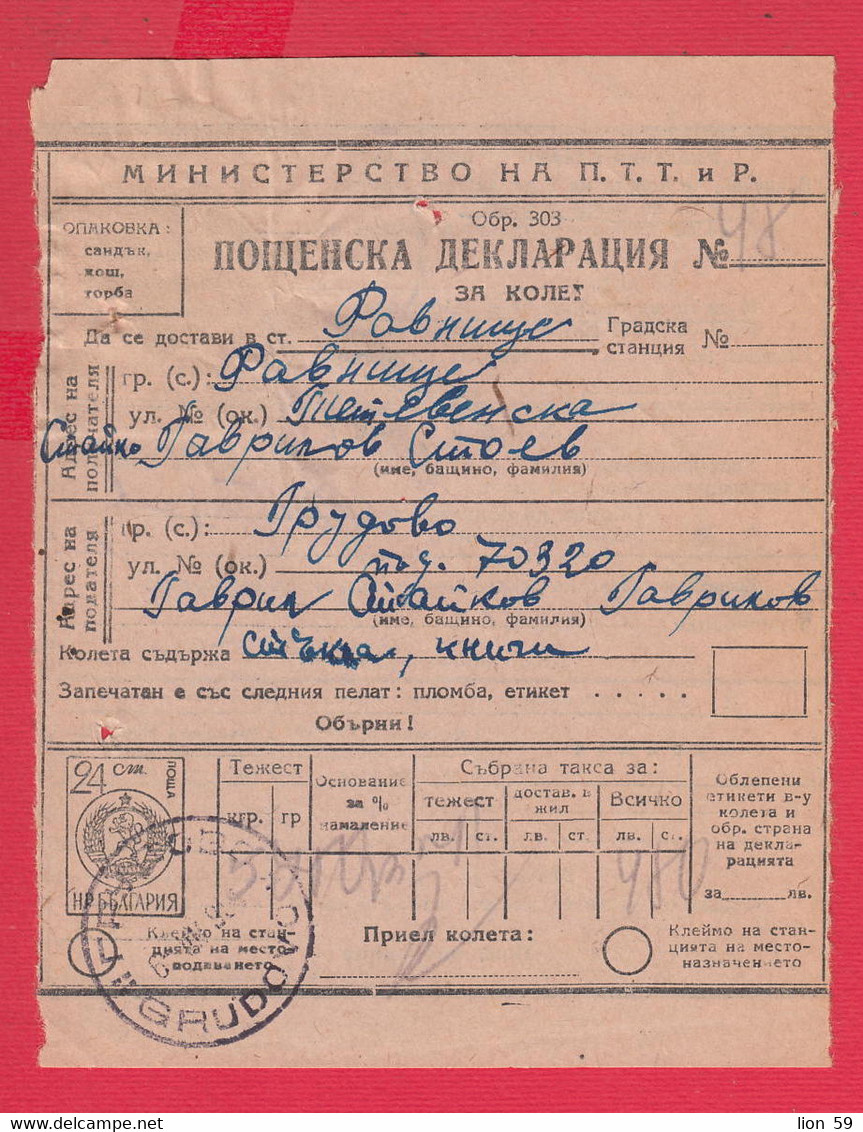 МИНИСТЕРСТВО НА П. Т. Т. и Р.
ОПАКОВКА:
сандък,
кош,
торба
Обр. 303
ПОЩЕНСКА ДЕКЛАРАЦИЯ № 48
ЗА КОЛЕТ
Да се достави в ст. Равнище Градска станция №
Адрес на получателя
гр. (с.): Равнище
ул. № (ок.) Тетевенска
Стайко Гаврилов Стоев
(име, бащино, фамилия)
Адрес на подателя
гр. (с.): Грудово
ул. № (ок.) под. 70320
Гаврил Стайков Гаврилов
(име, бащино, фамилия)
Колета съдържа стъкла, книги
Запечатан е със следния пелат: пломба, етикет . . . . .
Обърни!
24 ст. ПОЩА
НР БЪЛГАРИЯ
Тежест
кгр. гр
Основание за % намаление
Събрана такса за:
тежест достав. в жил Всичко
лв. ст. лв. ст. лв. ст.
480
Облепени етикети в-у колета и обр. страна на декларацията
за лв.
Клеймо на станцията на местоподаването
Приел колета:
Клеймо на станцията на местоназначението
GRUDOVO
lion 59